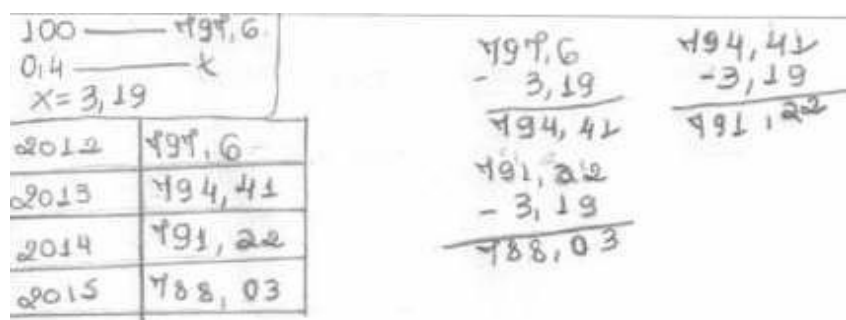 100 —— 797,6
0,4 —— x
x = 3,19
2012 797,6
2013 794,41
2014 791,22
2015 788,03
797,6
- 3,19
794,41
791,22
- 3,19
788,03
794,41
-3,19
791,22